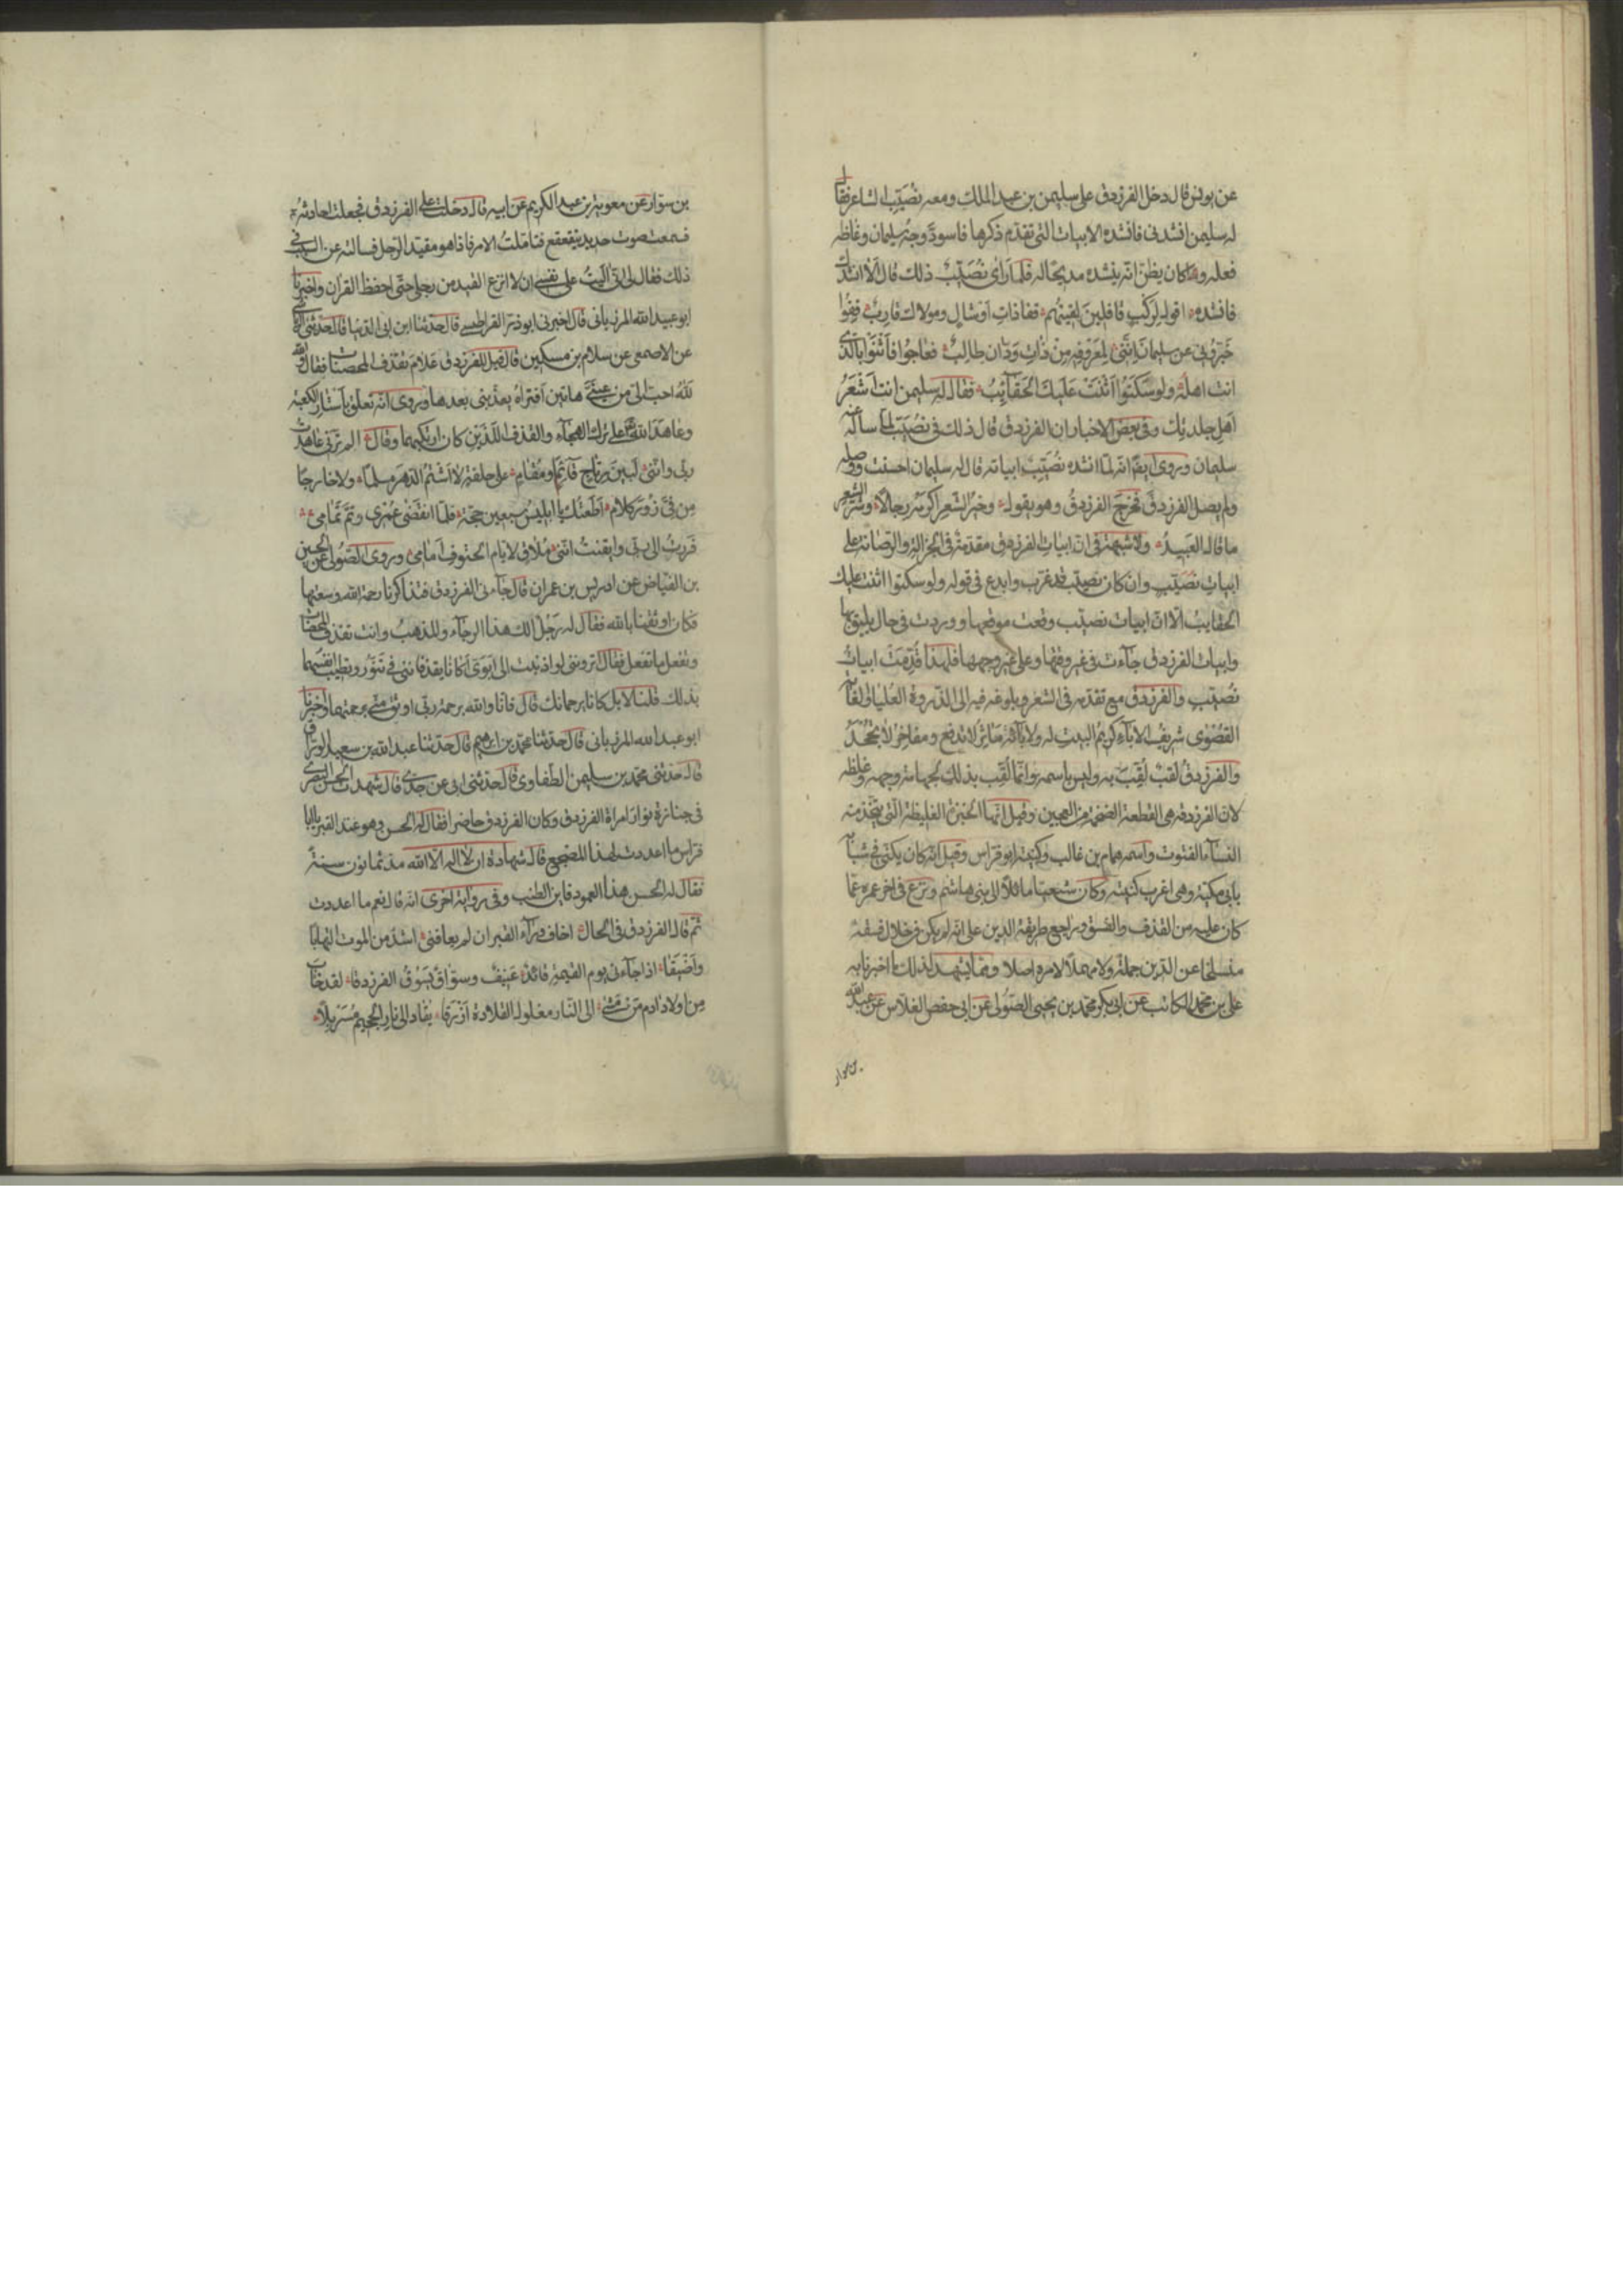 عن يونس قال دخل الفرزدق على سليمن بن عبد الملك ومعه نُصَيب الشاعر فقال
له سليمن انشدنى فانشده الابيات التى تقدم ذكرها فاسودّ وجه سليمان وغاظه
فعله وكان يظنّ انه ينشده مديحًا له فلما رأى نُصَيبٌ ذلك قال ألا انشدك
فانشده اقول لركبٍ قافلين لقيتُهم قفا ذاتِ اوشالٍ ومولاك قاربُ قِفُوا
خَبِّرُونى عن سليمانَ اِنَّنى لمعروفِهِ مِنْ ذاتِ وَدّان طالِبُ فعاجُوا فَاَثْنَوْا بالّذى
انت اهلُهُ ولو سَكَتُوا اَثْنَتْ عَلَيكَ الحَقَآئِبُ فقال له سليمن انت اَشْعَرُ
اَهلِ جلدتك وفى بعض الاخبار ان الفرزدق قال ذلك فى نُصَيب لما سأله عنه
سليمان وروى ايضًا انّه لمّا انشده نُصَيبٌ ابياته قال له سليمان احسنت ووصله
ولم يصل الفرزدقَ فخرجَ الفرزدقُ وهو يقول وخيرُ الشعرِ اكرمُه رجالاً وشرّ الشعر
ما قال العَبيدُ ولا شبهة فى انّ ابيات الفرزدق مقدّمة فى الجزالة والرصانة على
ابيات نُصَيب وان كان نصيب قد غرّب وابدع فى قوله ولو سكتوا اثنت عليك
الحقايبُ الّا انّ ابيات نصيب وقعت موقعها ووردت فى حال يليق بها
وابيات الفرزدق جآءت فى غير وقتها وعلى غير وجهها فلهذا قُدِّمَتْ ابياتُ
نُصَيب والفرزدق مع تقدمه فى الشعر وبلوغه فيه الى الذروة العُليا والغاية
القُصْوى شريفُ الاباءِ كريمُ البيت له ولابآئه مَآثِرُ لا تدفع ومفاخرُ لا تُجْحَدُ
والفرزدقُ لقبٌ لُقِّبَ به وليس باسمه وانّما لُقِّب بذلك لجهامة وجهه وغلظه
لان الفرزدقة هى القطعة الضخمة من العجين وقيل انّها الخبزة الغليظة الّتى يتّخذ منه
النساء الفتوت واسمه همام بن غالب وكنيته ابو فراس وقيل انّه كان يكنى فى شبابه
بابى مكية وهى اغرب كنيتيه وكان شيعيا مائلًا الى بنى هاشم ونزع فى اخر عمره عمّا
كان عليه من القذف والفسق وراجع طريقة الدين على انّه لم يكن فى خلال فسقه
منسلخا عن الدّين جملةً ولا مهملًا لامره اصلا وممّا يشهد لذلك ما اخبرنا به
على بن محمد الكاتب عن ابى بكر محمد بن يحيى الصّولى عن ابى حفص الفلاس عن عبد الله
بن سوار
بن سوّار عن معوية بن عبد الكريم عن ابيه قال دخلت على الفرزدق فجعلت احادثه
فسمعت صوت حديد يتقعقع فتاملتُ الامر فاذا هو مقيّد الرّجل فسالته عن السبب فى
ذلك فقال لى انّى آليتُ على نفسى ان لا انزع القيد من رجلى حتّى احفظ القران واخبرنا
ابو عبيد الله المرزبانى قال اخبرنى ابو ذرّ القراطيسى قال حدّثنا ابن ابى الدّنيا قال حدّثنى الرياشى
عن الاصمعى عن سلام بن مسكين قال قيل للفرزدق علام تقذف المحصنات فقال والله
لَلّهُ احبّ الىّ من عينَىَّ هاتين اَفتراهُ يعذّبنى بعدها وروى انّه تعلّق بأستار الكعبة
وعاهد الله على ترك الهجآء والقذف اللّذين كان ارتكبهما وقال الم ترنى عاهدتُ
ربّى وانّنى لَبَيْنَ رِتاجٍ قآئمًا ومُقامِ على حلفة لا اَشْتُمُ الدّهرَ مسلمًا ولا خارجًا
مِن فِىَّ زُورَ كلام اَطَعْتُكَ يا ابليسُ سبعين حجّةً فلمّا انقَضَى عُمْرى وتَمّ تَمَامِى
فَزِعْتُ الى ربّى وايقنتُ انّنى مُلاقٍ لايّام الحتوف اَمَامِى وروى الصّولى عن الحسين
بن الفياض عن ادريس بن عمران قال جآءنى الفرزدق فتذاكرنا رحمة الله وسعتها
فكان اوثقنا بالله فقال له رجل الك هذا الرجآء والمذهبُ وانت تقذف المحصنات
وتفعل ما تفعل فقال اترونى لو اذنبت الى اَبَوَىَّ اكانا يقذفاننى فى تَنّورٍ وتطيب انفسهما
بذلك قلنا لا بل كانا يرحمانك قال فانا والله برحمة ربّى اوثق منّى برحمتهما واخبرنا
ابو عبد الله المرزبانى قال حدّثنا محمّد بن ابرهيم قال حدّثنا عبد الله بن سعيد الورّاق
قال حدّثنى محمّد بن سليمن الطّفاوى قال حدّثنى ابى عن جدّى قال شهدت الحسن البصرى
فى جنازة نوار امراة الفرزدق وكان الفرزدق حاضرا فقال له الحسن وهو عند القبر يا ابا
فراس ما اعددت لهذا المضجع قال شهادة ان لا اله الّا الله مذ ثمانون سنةً
فقال له الحسن هذا العمود فاين الطنب وفى رواية اخرى انّه قال نعم ما اعددت
ثمّ قال الفرزدق فى الحال اخاف ورآء القبر ان لم يعافنى اشدّ من الموت التهابًا
واَضْيَقَا اذا جآءنى يوم القيمة قائدٌ عَنِيفٌ وسوّاقٌ يَسُوقُ الفرزدقا لقد خابَ
مِن اولاد ادم مَن مَشَى الى النّار مغلول القلادة اَزْرَقَا يقاد الى نارِ الجحيم مُسَرْبلًا